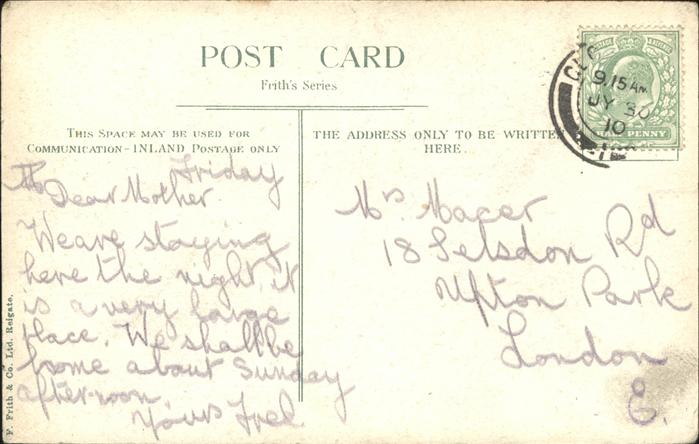 POST CARD
Frith's Series
THIS SPACE MAY BE USED FOR
COMMUNICATION - INLAND POSTAGE ONLY
THE ADDRESS ONLY TO BE WRITTEN
HERE.
POSTAGE REVENUE
HALF PENNY
9.15 AM
JY 30
10
Friday
Dear Mother
We are staying
here the night, it
is a very large
place. We shall be
home about Sunday
after-noon.
Yours Fred.
Mrs Macer
18 Selsdon Rd
Upton Park
London
E.
F. Frith & Co. Ltd. Reigate.